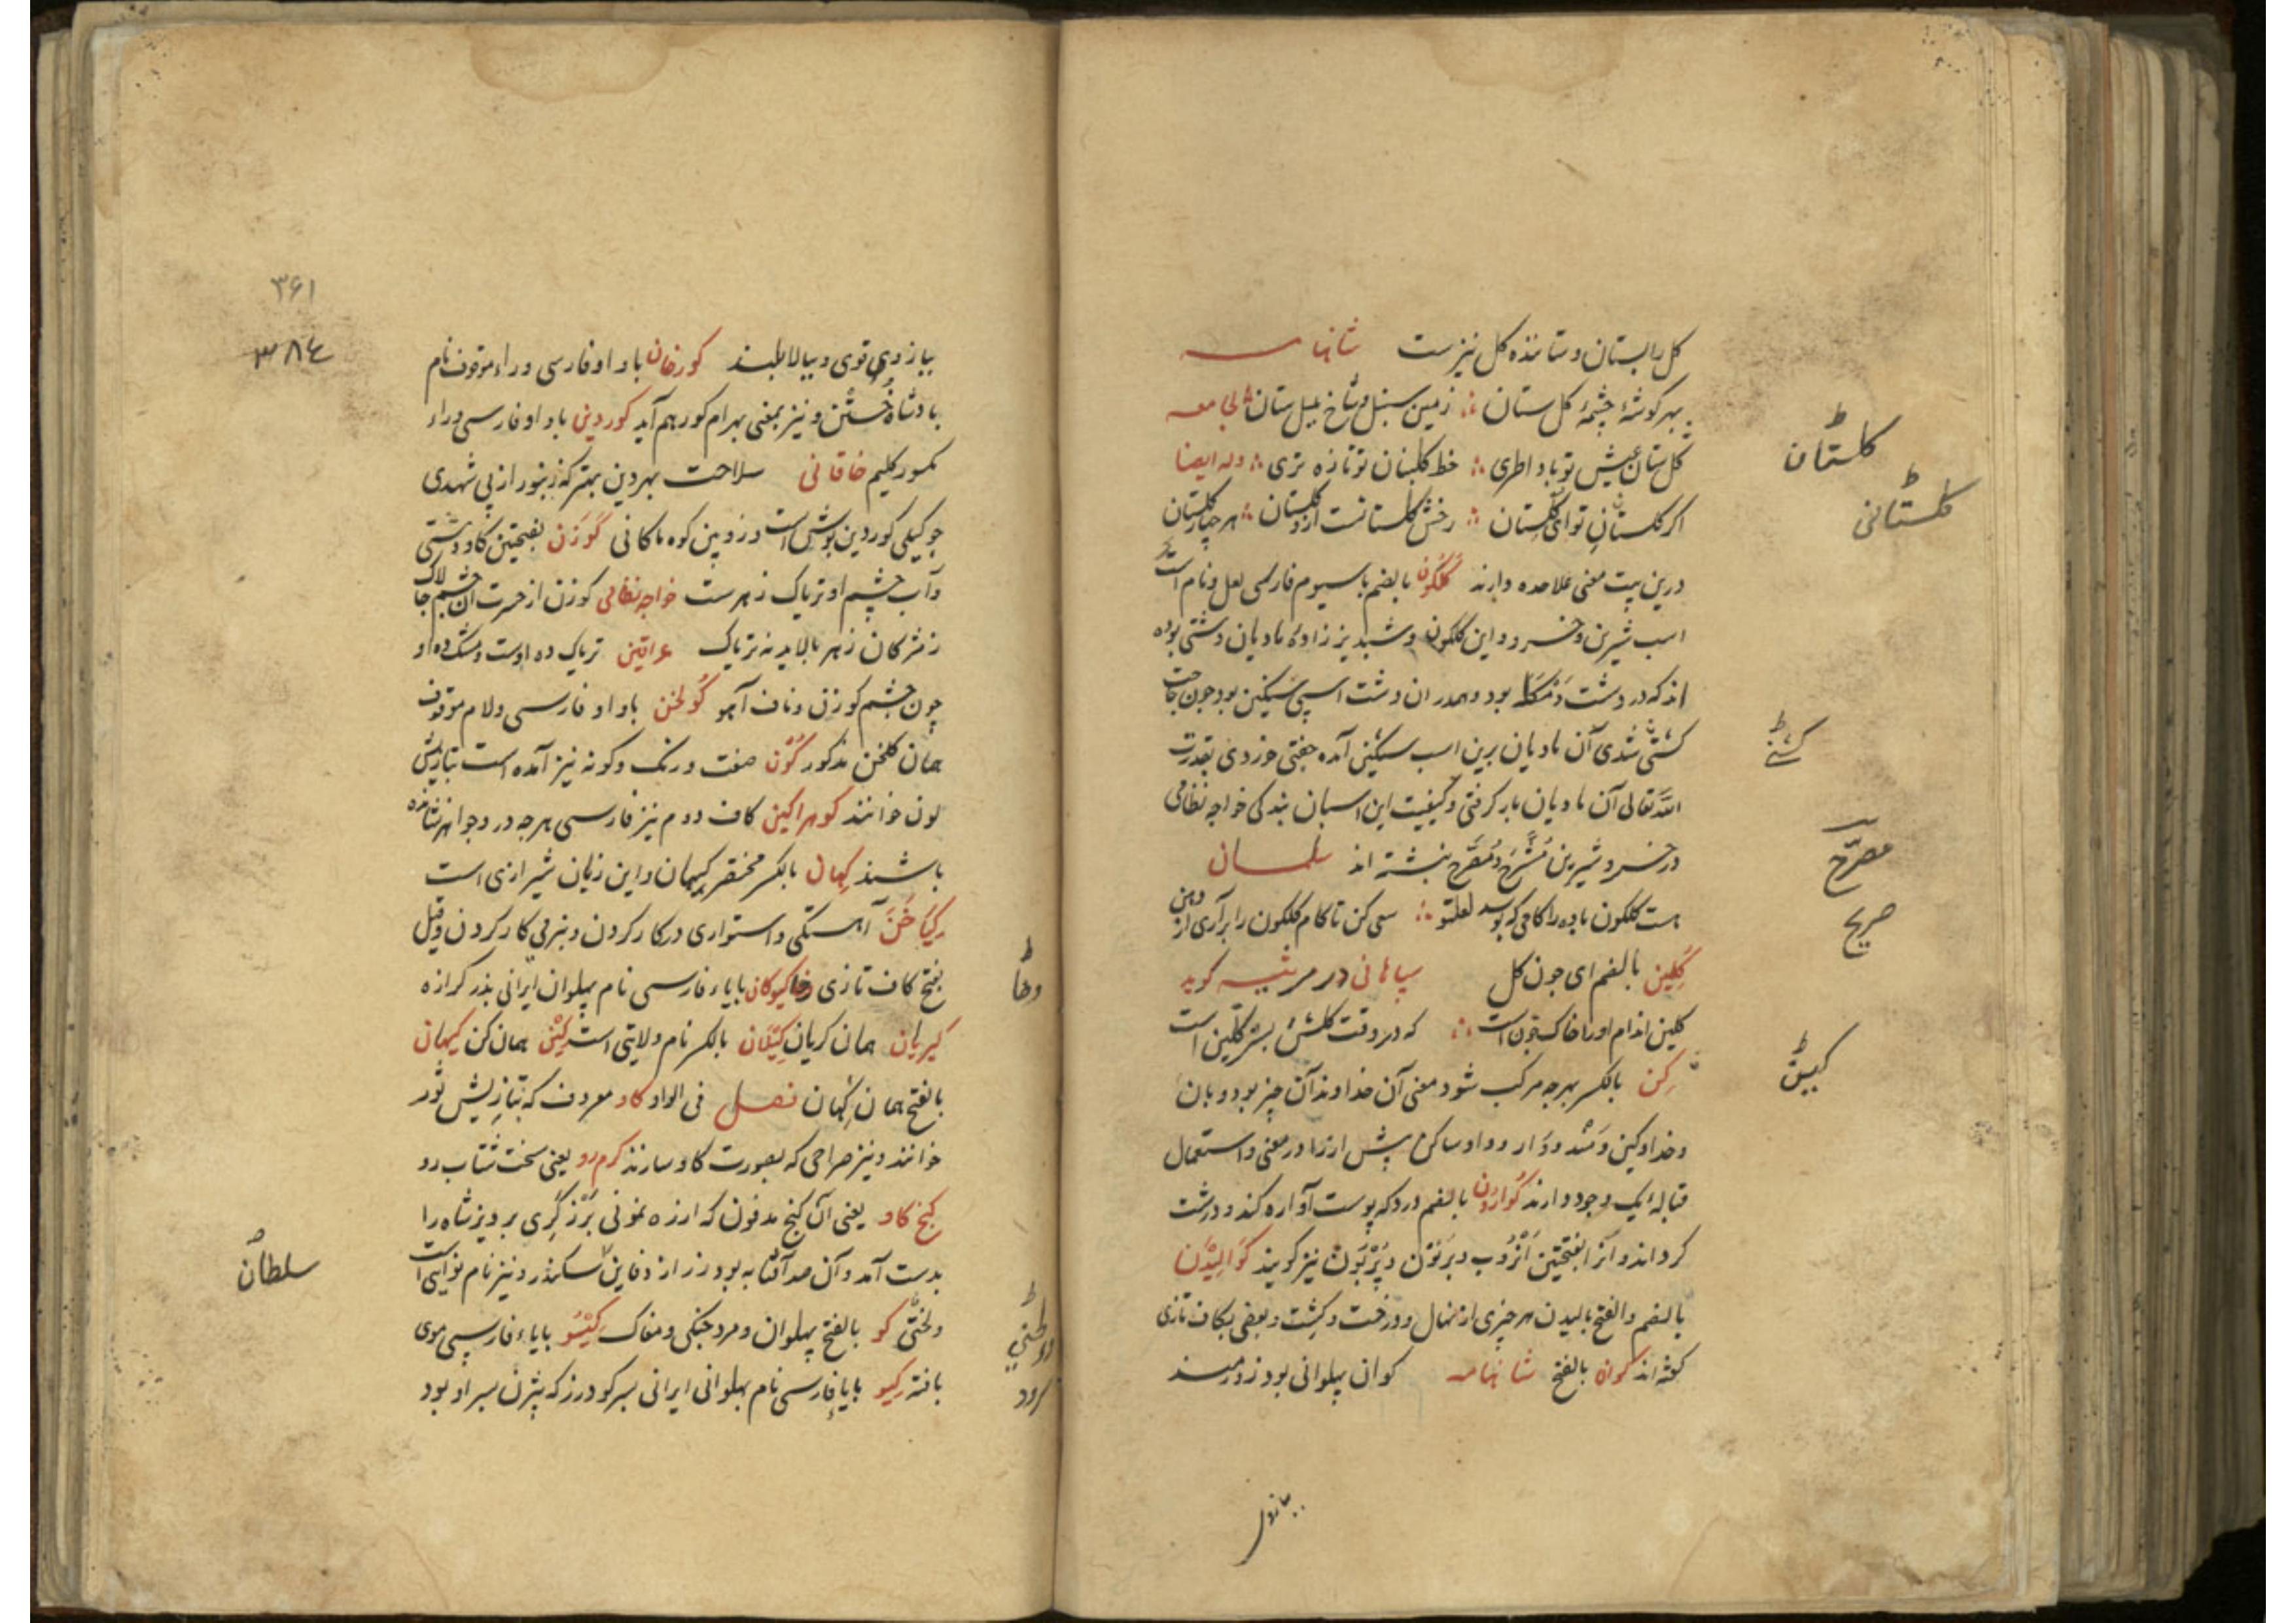 گل را بستان و ستاننده گل نیز ست شاهنامه
بهر گوشهٔ چشمهٔ گل ستان زمین سنبل و شاخ بلبل ستان
گل ستان عیش تو باد اطری خط گلبنان تو تازه تری وله ایضا
اکر گلستان تو ای گلستان رخش گلستانست از گلستان هر چهار گلستان
درین بیت معنی علاحده دارند گلگون بالضم با سیوم فارسی لعل و نام است
اسب شیرین و خسرو و این گلگون و شبدیز زاده مادیان دشتی بوده
اند که در دشت بود و همدران دشت اسپی سنگین بود چون حاجت
کشنی شدی آن مادیان برین اسب سنگین آمده جفتی خوردی بقدرت
الله تعالی آن مادیان بار کرفتی و کیفیت این اسبان بندکی خواجه نظامی
در خسرو شیرین مشرح و مصرح نبشته اند سلمان
هست گلگون باده را کامی که بوسد لعل تو سعی کن تا کام گلگون را برآری از دهن
گلین بالضم ای جون کل سپاهانی در مرثیه کوید
گلین اندام او را خاک خونست که در وقت گلشن بستر گلین است
کن بالکسر بهرجه مرکب شود معنی آن خداوند آن چیز بود و بان
وخداوکین و مند و وار و واو ساکن پیش ازرا در معنی و استعمال
قباله ایک وجود دارند گوارون بالضم درد که پوست آواره کند و درشت
کرداند و آنرا بفتحتین اندوب و بریون و پریون نیز کویند گوالیدن
بالضم والفتح بالیدن هر چیزی از نهال و درخت و کشت و بعضی بکاف تازی
کفته اند گوان بالفتح شاهنامه کوان پهلوانی بود زورمند
گلستان
گلستانی
کشنی
مصرح
صریح
ببازوی قوی و ببالا بلند کورخان باواو فارسی و راء موقوف نام
بادشاه ختن و نیز بمعنی بهرام کور هم آید کوردین باواو فارسی و راء
مکسور کلیم خاقانی سلاحت بهر دین بهتر که زنبور از پی شهدی
جو کیلی کوردین پوش است و زوبین کوه ماکانی گوزن بفتحتین کاو دشتی
و آب چشم او تریاک زهرست خواجه نظامی کوزن از حسرت آن چشم چالاک
ز مژکان زهر بالاید نه تریاک عراقین تریاک ده اوست و مشک ده او
چون چشم کوزن و ناف آهو گولخن باواو فارسی و لام موقوف
همان گلخن مذکور گون صفت و رنک و کونه نیز آمده است بتازیش
لون خوانند کوهراکین کاف دوم نیز فارسی هرجه در و جواهر نشانده
باشند کهان بالکسر مختصر کیهان و این زبان شیرازی است
کیاخن آهستگی و استواری در کار کردن و بنرمی کار کردن و قیل
بفتح کاف تازی وخا کیوکان بایاء فارسی نام پهلوان ایرانی پدر کرازه
کیریان همان کریان کیلان بالکسر نام ولایتی است کین همان کن کیهان
بالفتح همان کهان فصل فی الواو کاو معروف که بتازیش ثور
خوانند و نیز صراحی که بصورت کاو سازند کرم رو یعنی سخت شتاب رو
کنج کاو یعنی آن کنج مدفون که ارزه نمونی برزگری بر ویز شاه را
بدست آمد و آن صد آفتابه بود زر از دفاین سکندر و نیز نام نوایی است
و لحنی کو بالفتح پهلوان و مرد جنگی و مغاک کیسو بایاء فارسی موی
بافته کیو بایاء فارسی نام پهلوانی ایرانی پسر کودرز که بیژن پسر او بود
۳۶۱
۳۸۴
وخا
سلطان
سرود